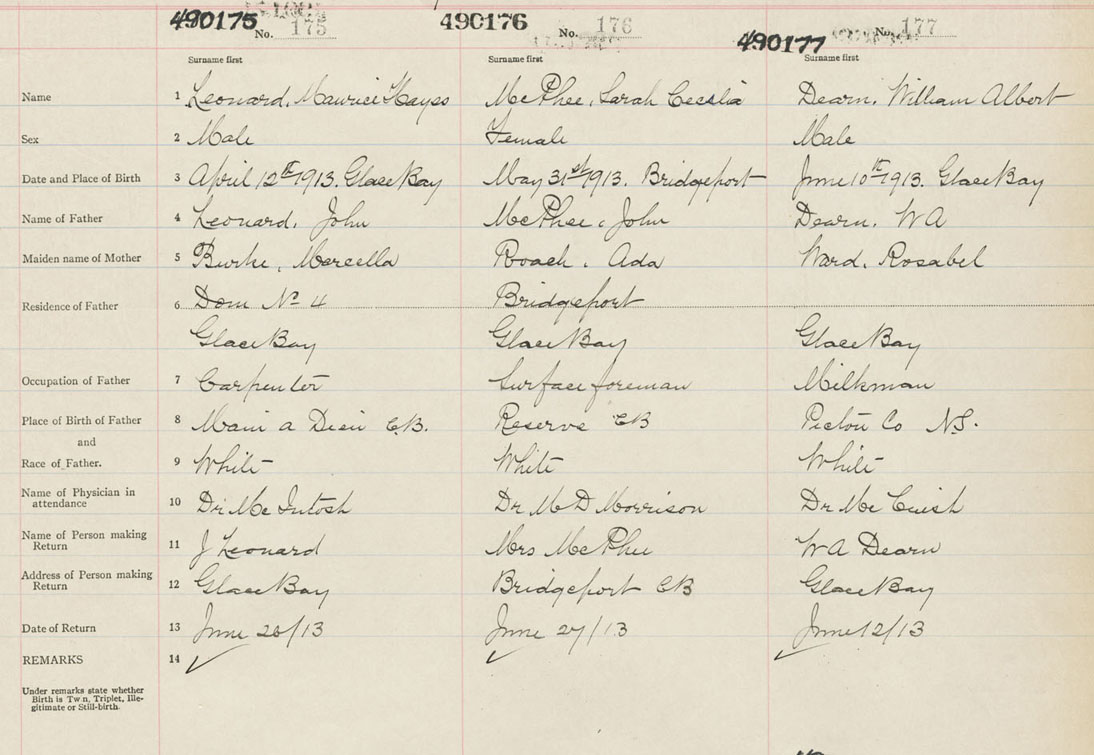 490175 No. 175 490176 No. 176 490177 No. 177
Surname first Surname first Surname first
Name 1 Leonard, Maurice Hayes McPhee, Sarah Cecelia Dearn, William Albert
Sex 2 Male Female Male
Date and Place of Birth 3 April 12th 1913. Glace Bay May 31st 1913. Bridgeport June 10th 1913. Glace Bay
Name of Father 4 Leonard, John McPhee, John Dearn, W A
Maiden name of Mother 5 Burke, Marcella Roach, Ada Ward, Rosabel
Residence of Father 6 Dom No 4 Bridgeport
Glace Bay Glace Bay Glace Bay
Occupation of Father 7 Carpenter Surface foreman Milkman
Place of Birth of Father 8 Main a Dieu C.B. Reserve CB Pictou Co N.S.
and
Race of Father. 9 White White White
Name of Physician in
attendance 10 Dr McIntosh Dr M D Morrison Dr McCuish
Name of Person making
Return 11 J Leonard Mrs McPhee W A Dearn
Address of Person making
Return 12 Glace Bay Bridgeport CB Glace Bay
Date of Return 13 June 26/13 June 27/13 June 12/13
REMARKS 14
Under remarks state whether
Birth is Twin, Triplet, Ille-
gitimate or Still-birth.